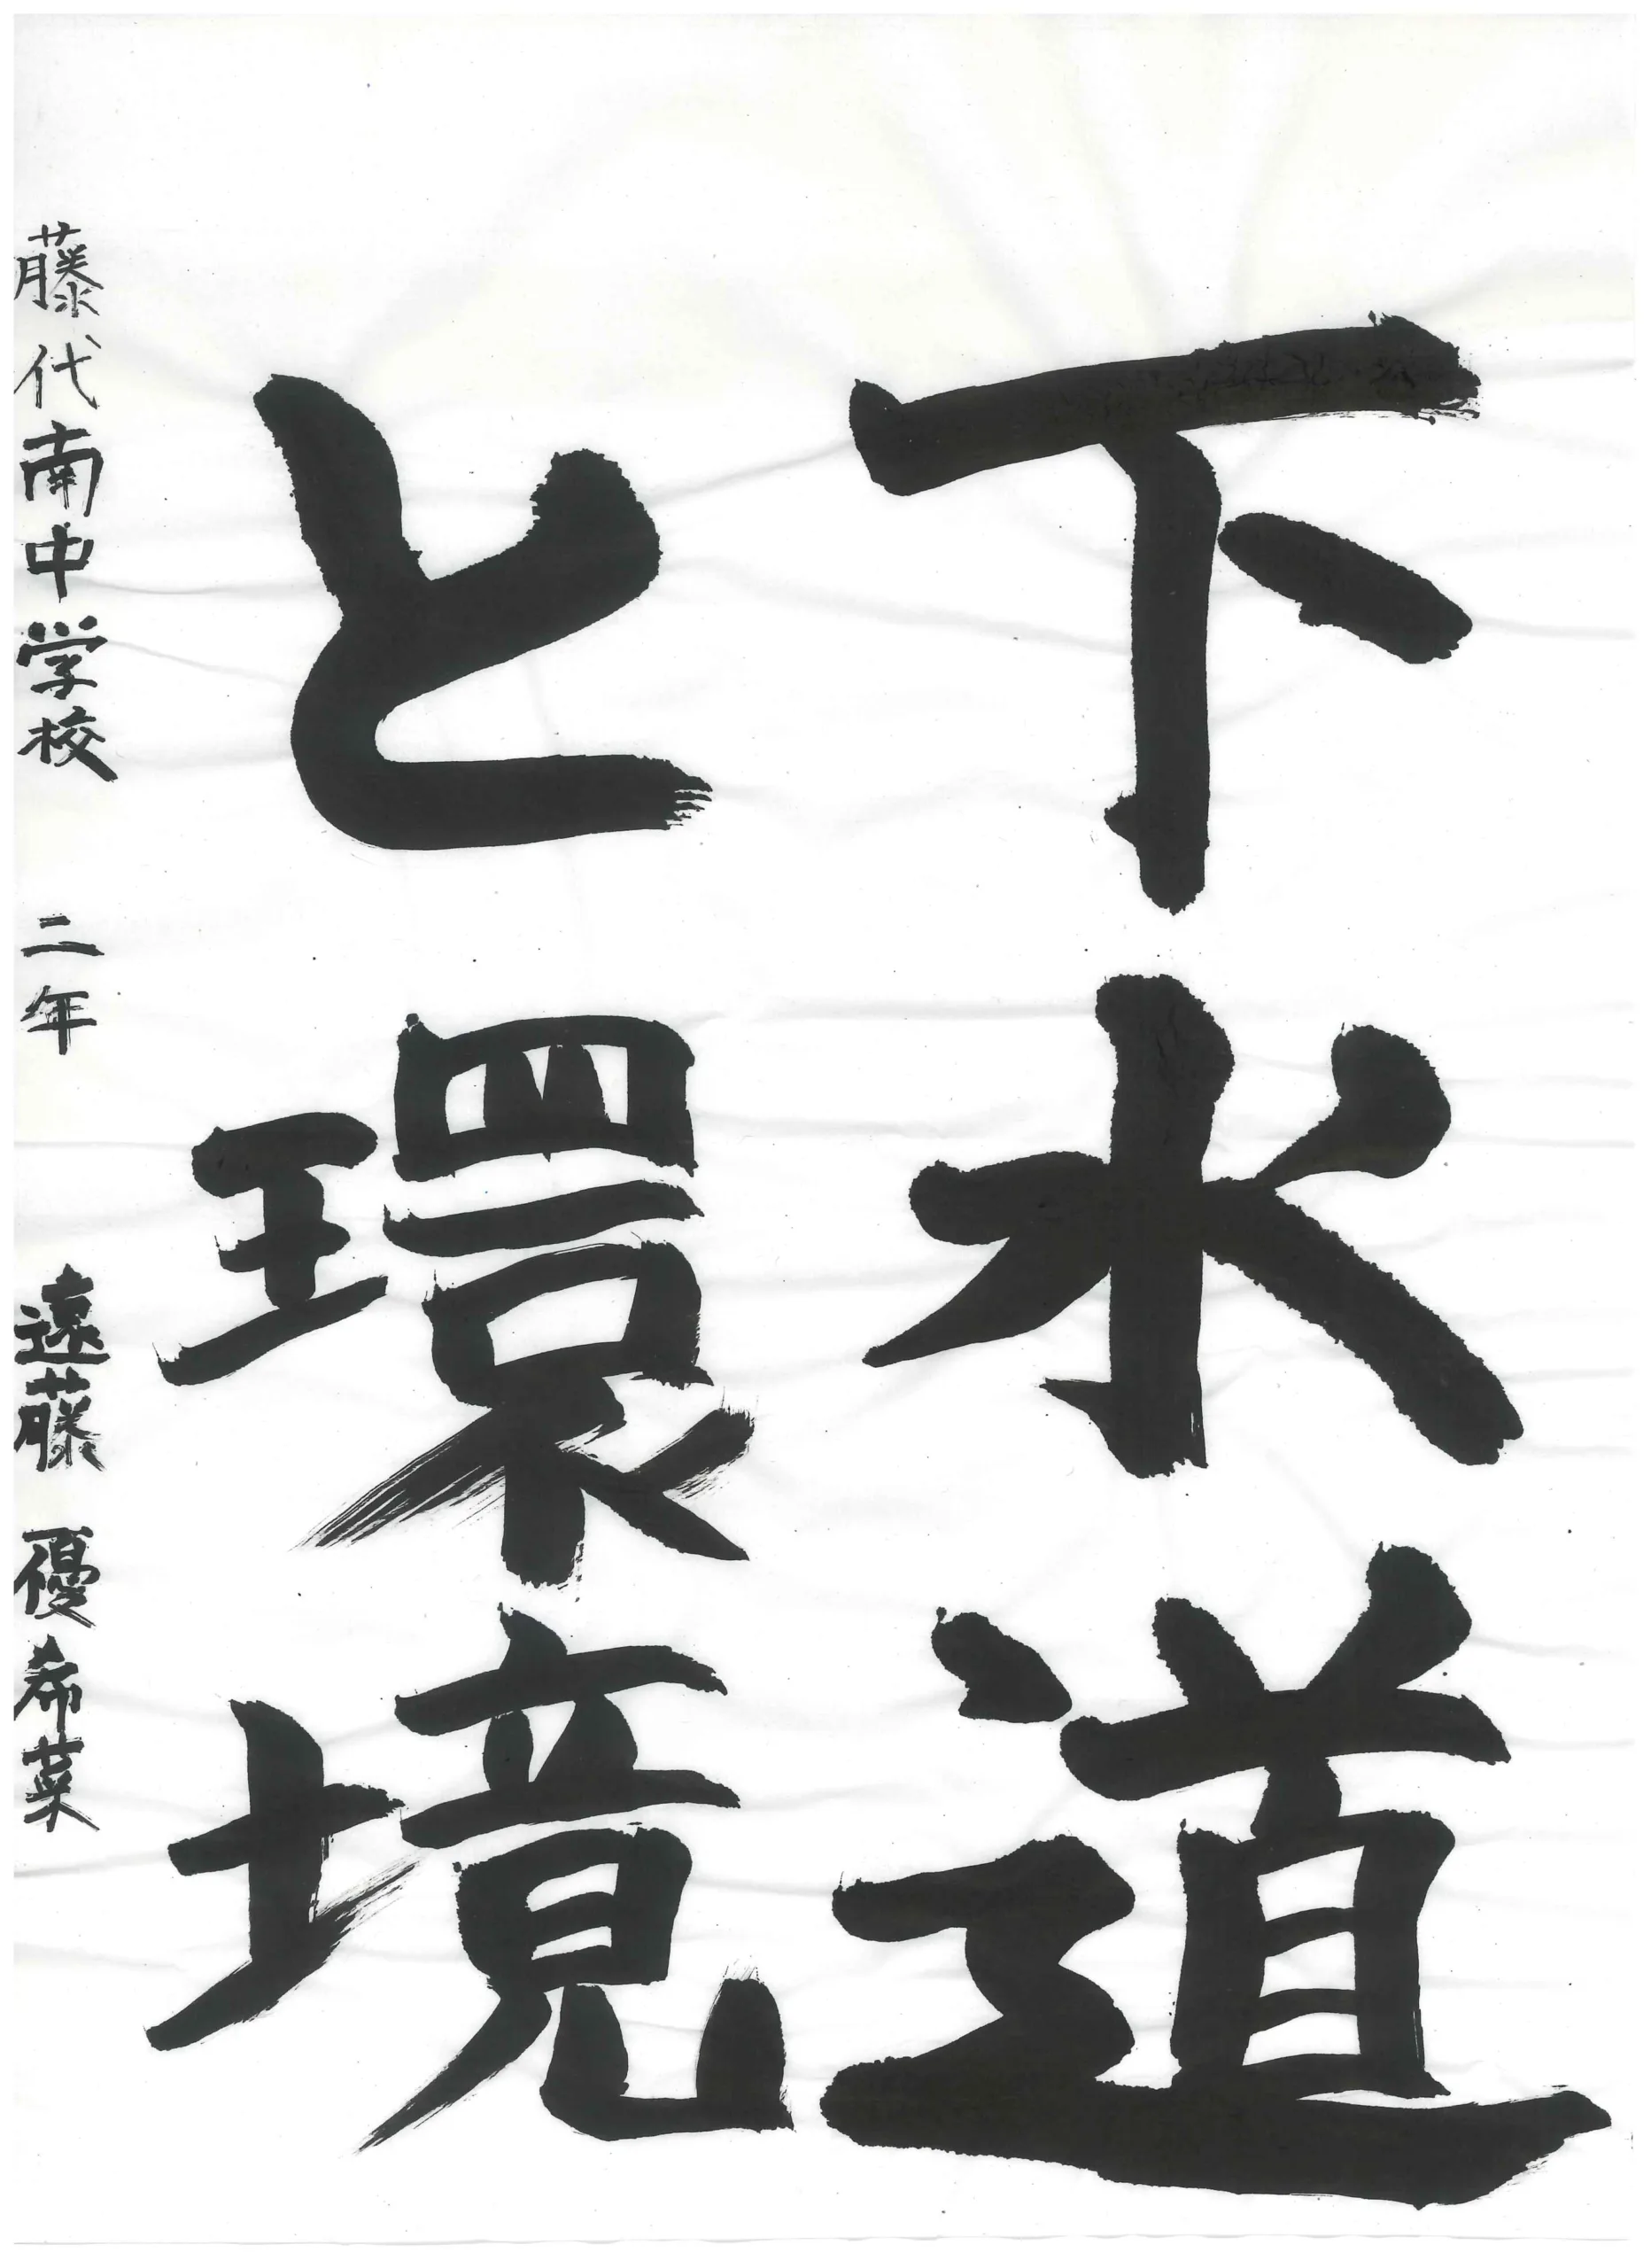 下水道
と環境
藤代南中学校 二年 遠藤 優希菜